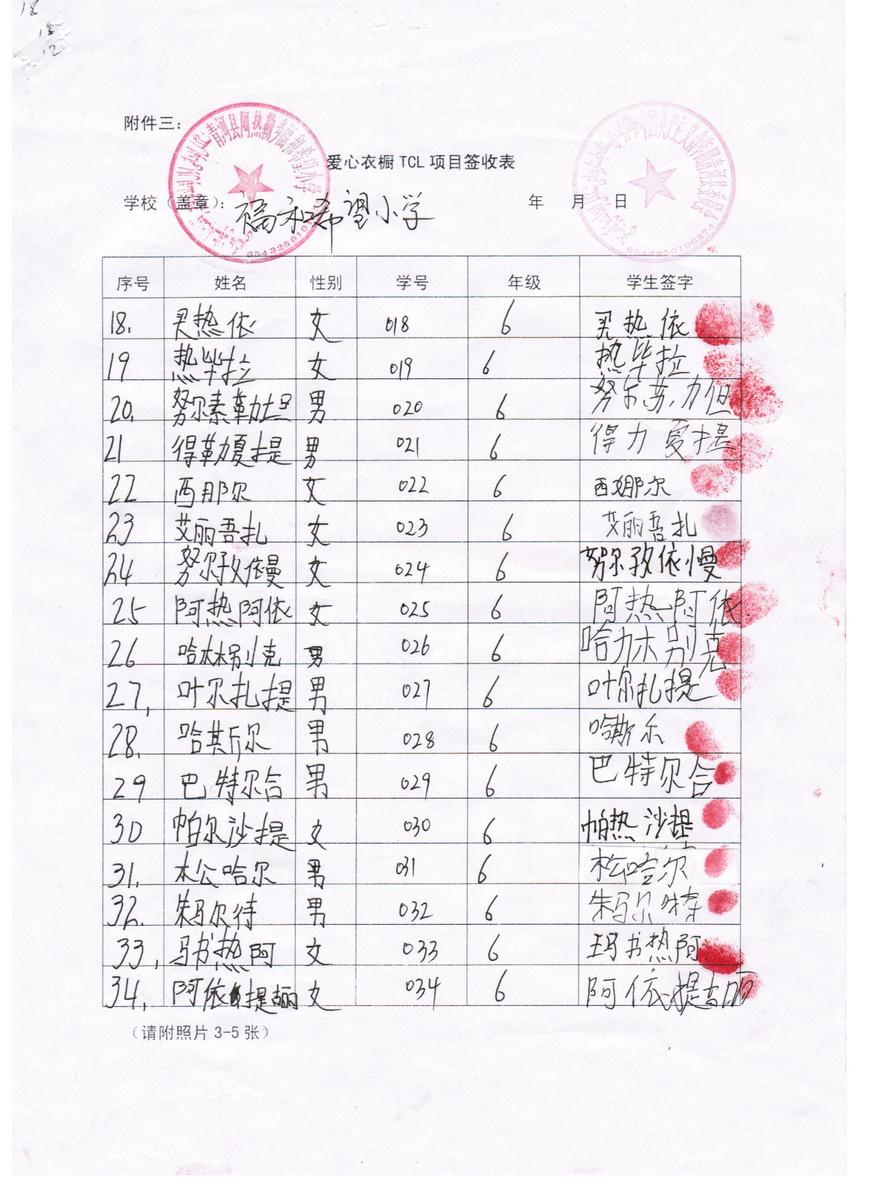 18
18
12
附件三：
爱心衣橱 TCL 项目签收表
学校（盖章）： 福和希望小学 年 月 日
序号 姓名 性别 学号 年级 学生签字
18. 买热依 女 018 6 买热依
19 热毕拉 女 019 6 热毕拉
20. 努尔素勒坦 男 020 6 努尔苏力但
21 得勒夏提 男 021 6 得力夏提
22 西那尔 女 022 6 西娜尔
23 艾丽吾扎 女 023 6 艾丽吾扎
24 努尔孜依曼 女 024 6 努尔孜依慢
25 阿热阿依 女 025 6 阿热阿依
26 哈林别克 男 026 6 哈力木别克
27, 叶尔扎提 男 027 6 叶尔扎提
28. 哈斯尔 男 028 6 哈斯尔
29 巴特尔合 男 029 6 巴特尔合
30 帕尔沙提 女 030 6 帕热沙提
31. 松哈尔 男 031 6 松哈尔
32. 朱玛尔特 男 032 6 朱玛尔特
33, 马书热阿 女 033 6 玛书热阿
34, 阿依提 女 034 6 阿依提
（请附照片 3-5 张）